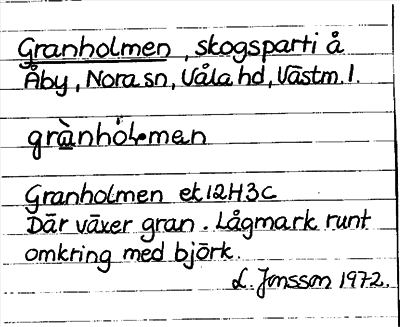 Granholmen, skogsparti å
Åby, Nora sn, Våla hd, Västm. l.
grànhòl·men
Granholmen ek 12H3c
Där växer gran. Lågmark runt
omkring med björk.
L. Jonsson 1972.